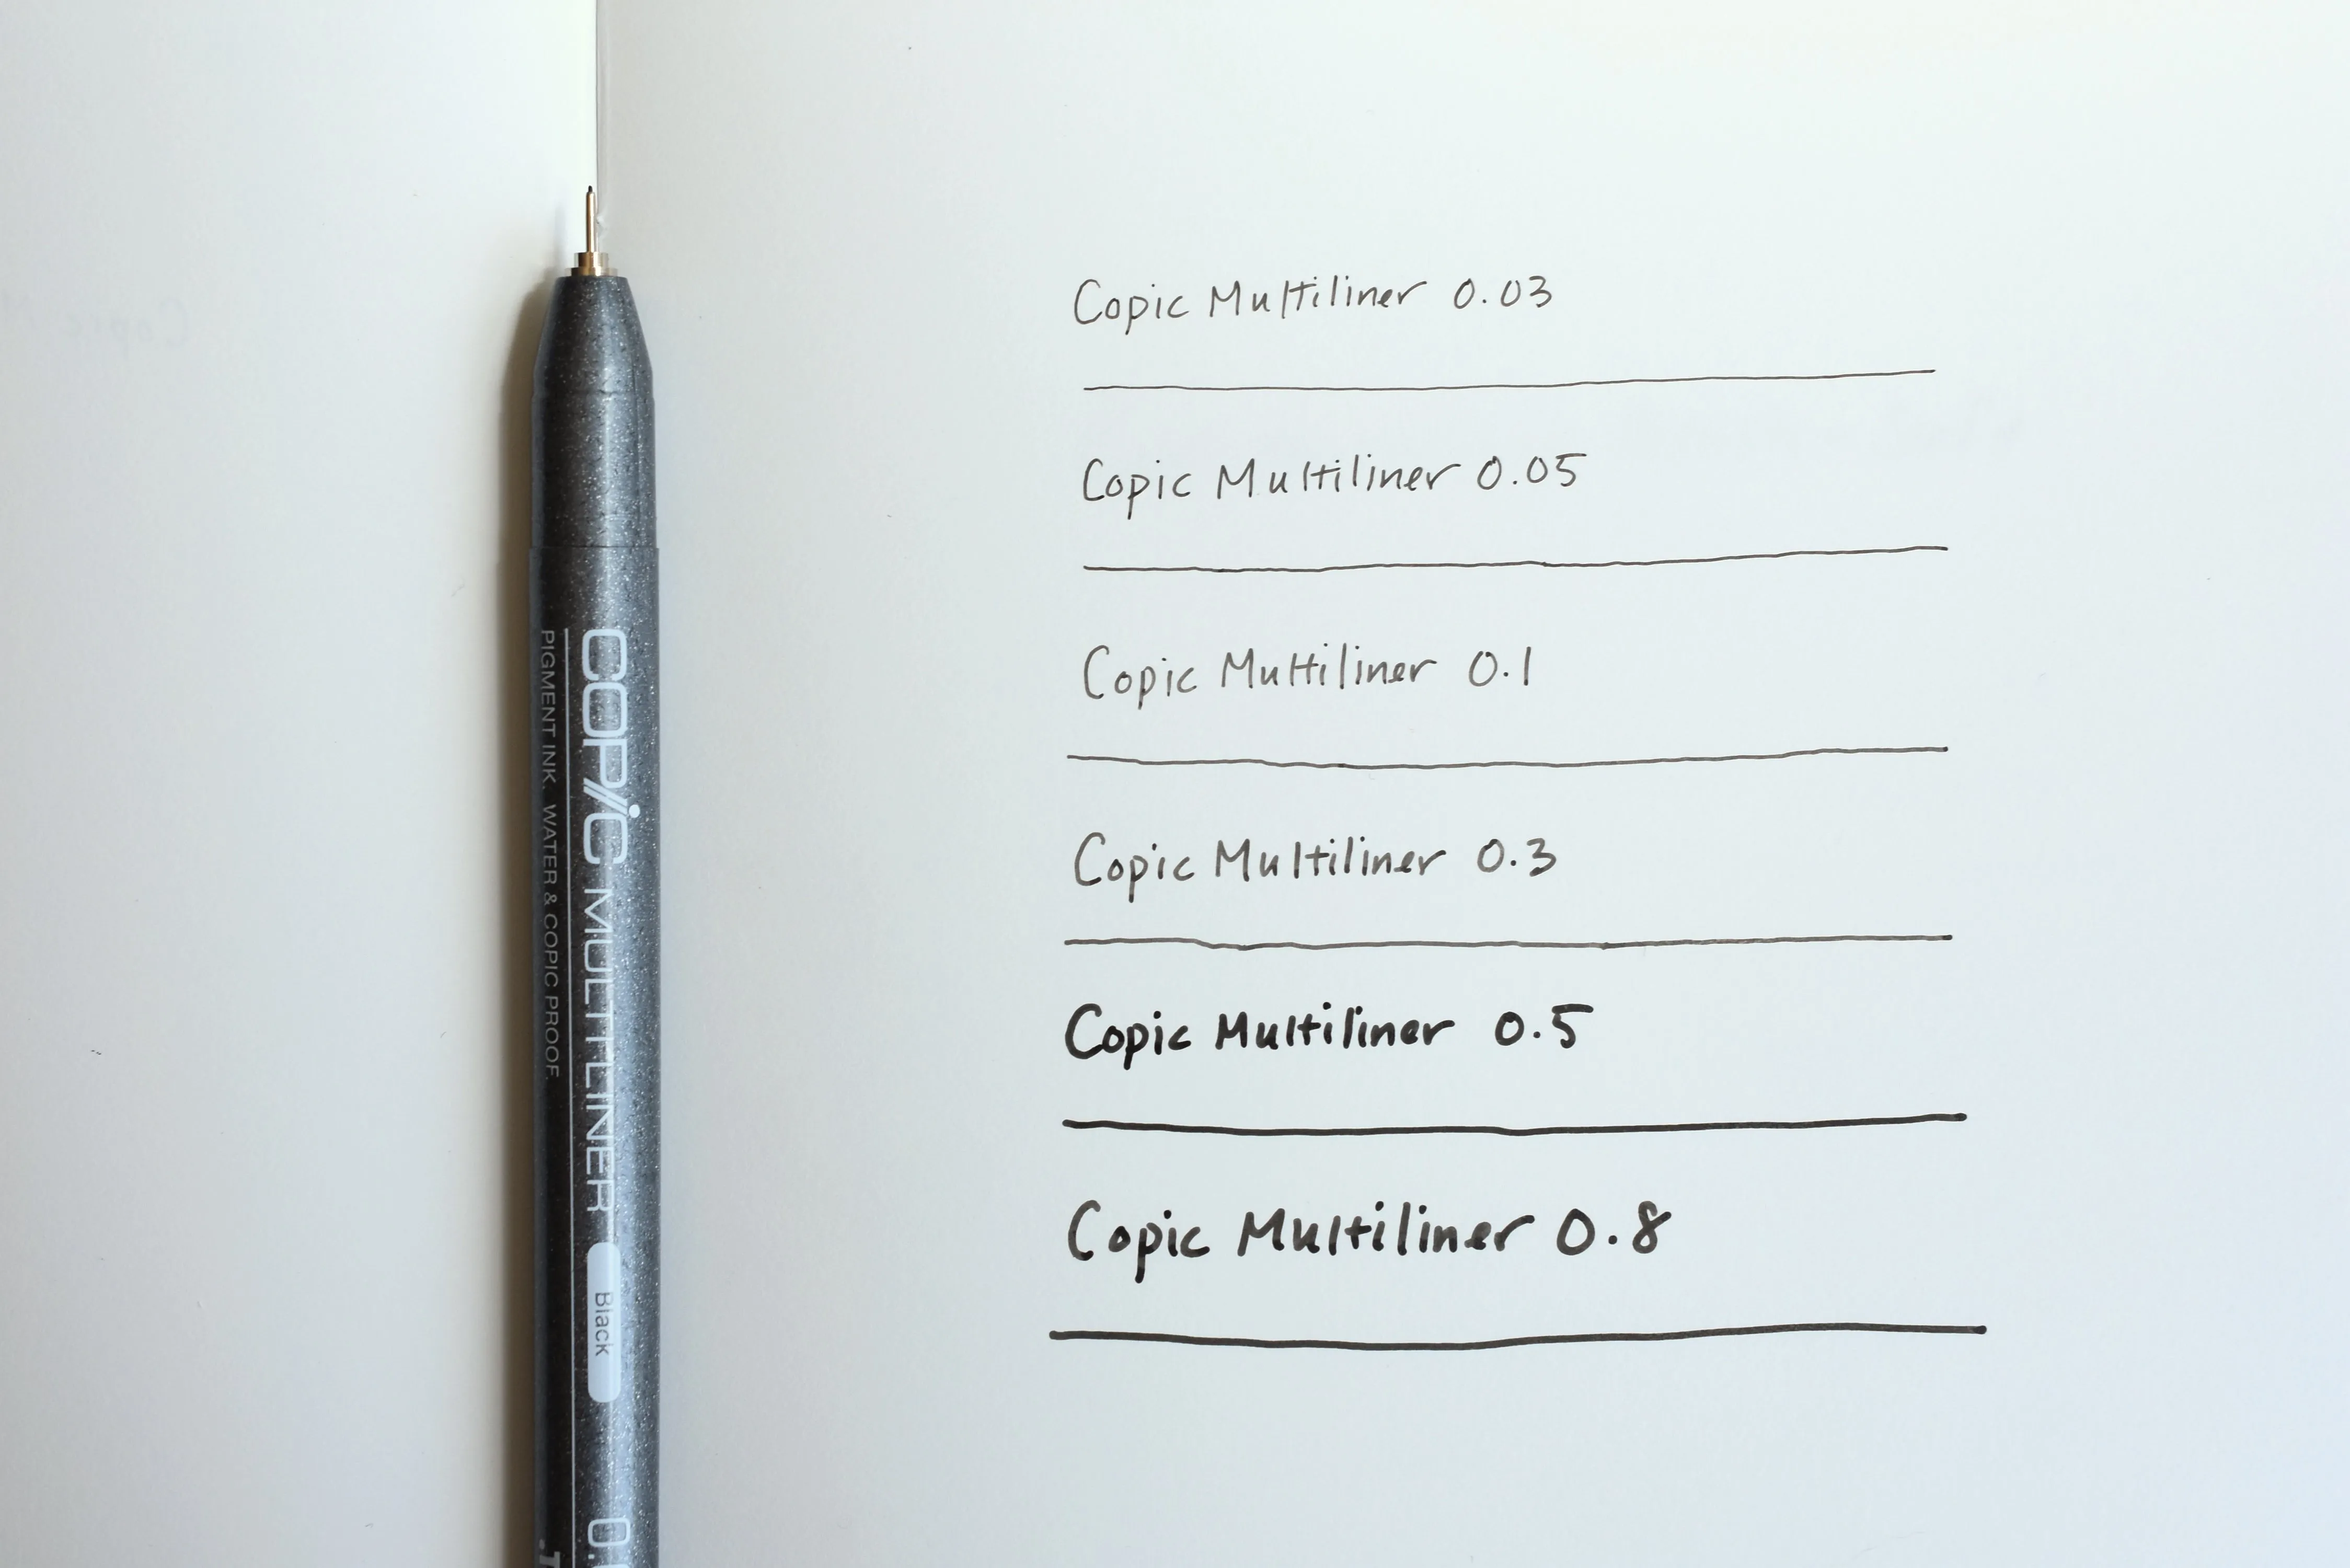 COPIC MULTILINER Black
PIGMENT INK. WATER & COPIC PROOF.
Copic Multiliner 0.03
Copic Multiliner 0.05
Copic Multiliner 0.1
Copic Multiliner 0.3
Copic Multiliner 0.5
Copic Multiliner 0.8